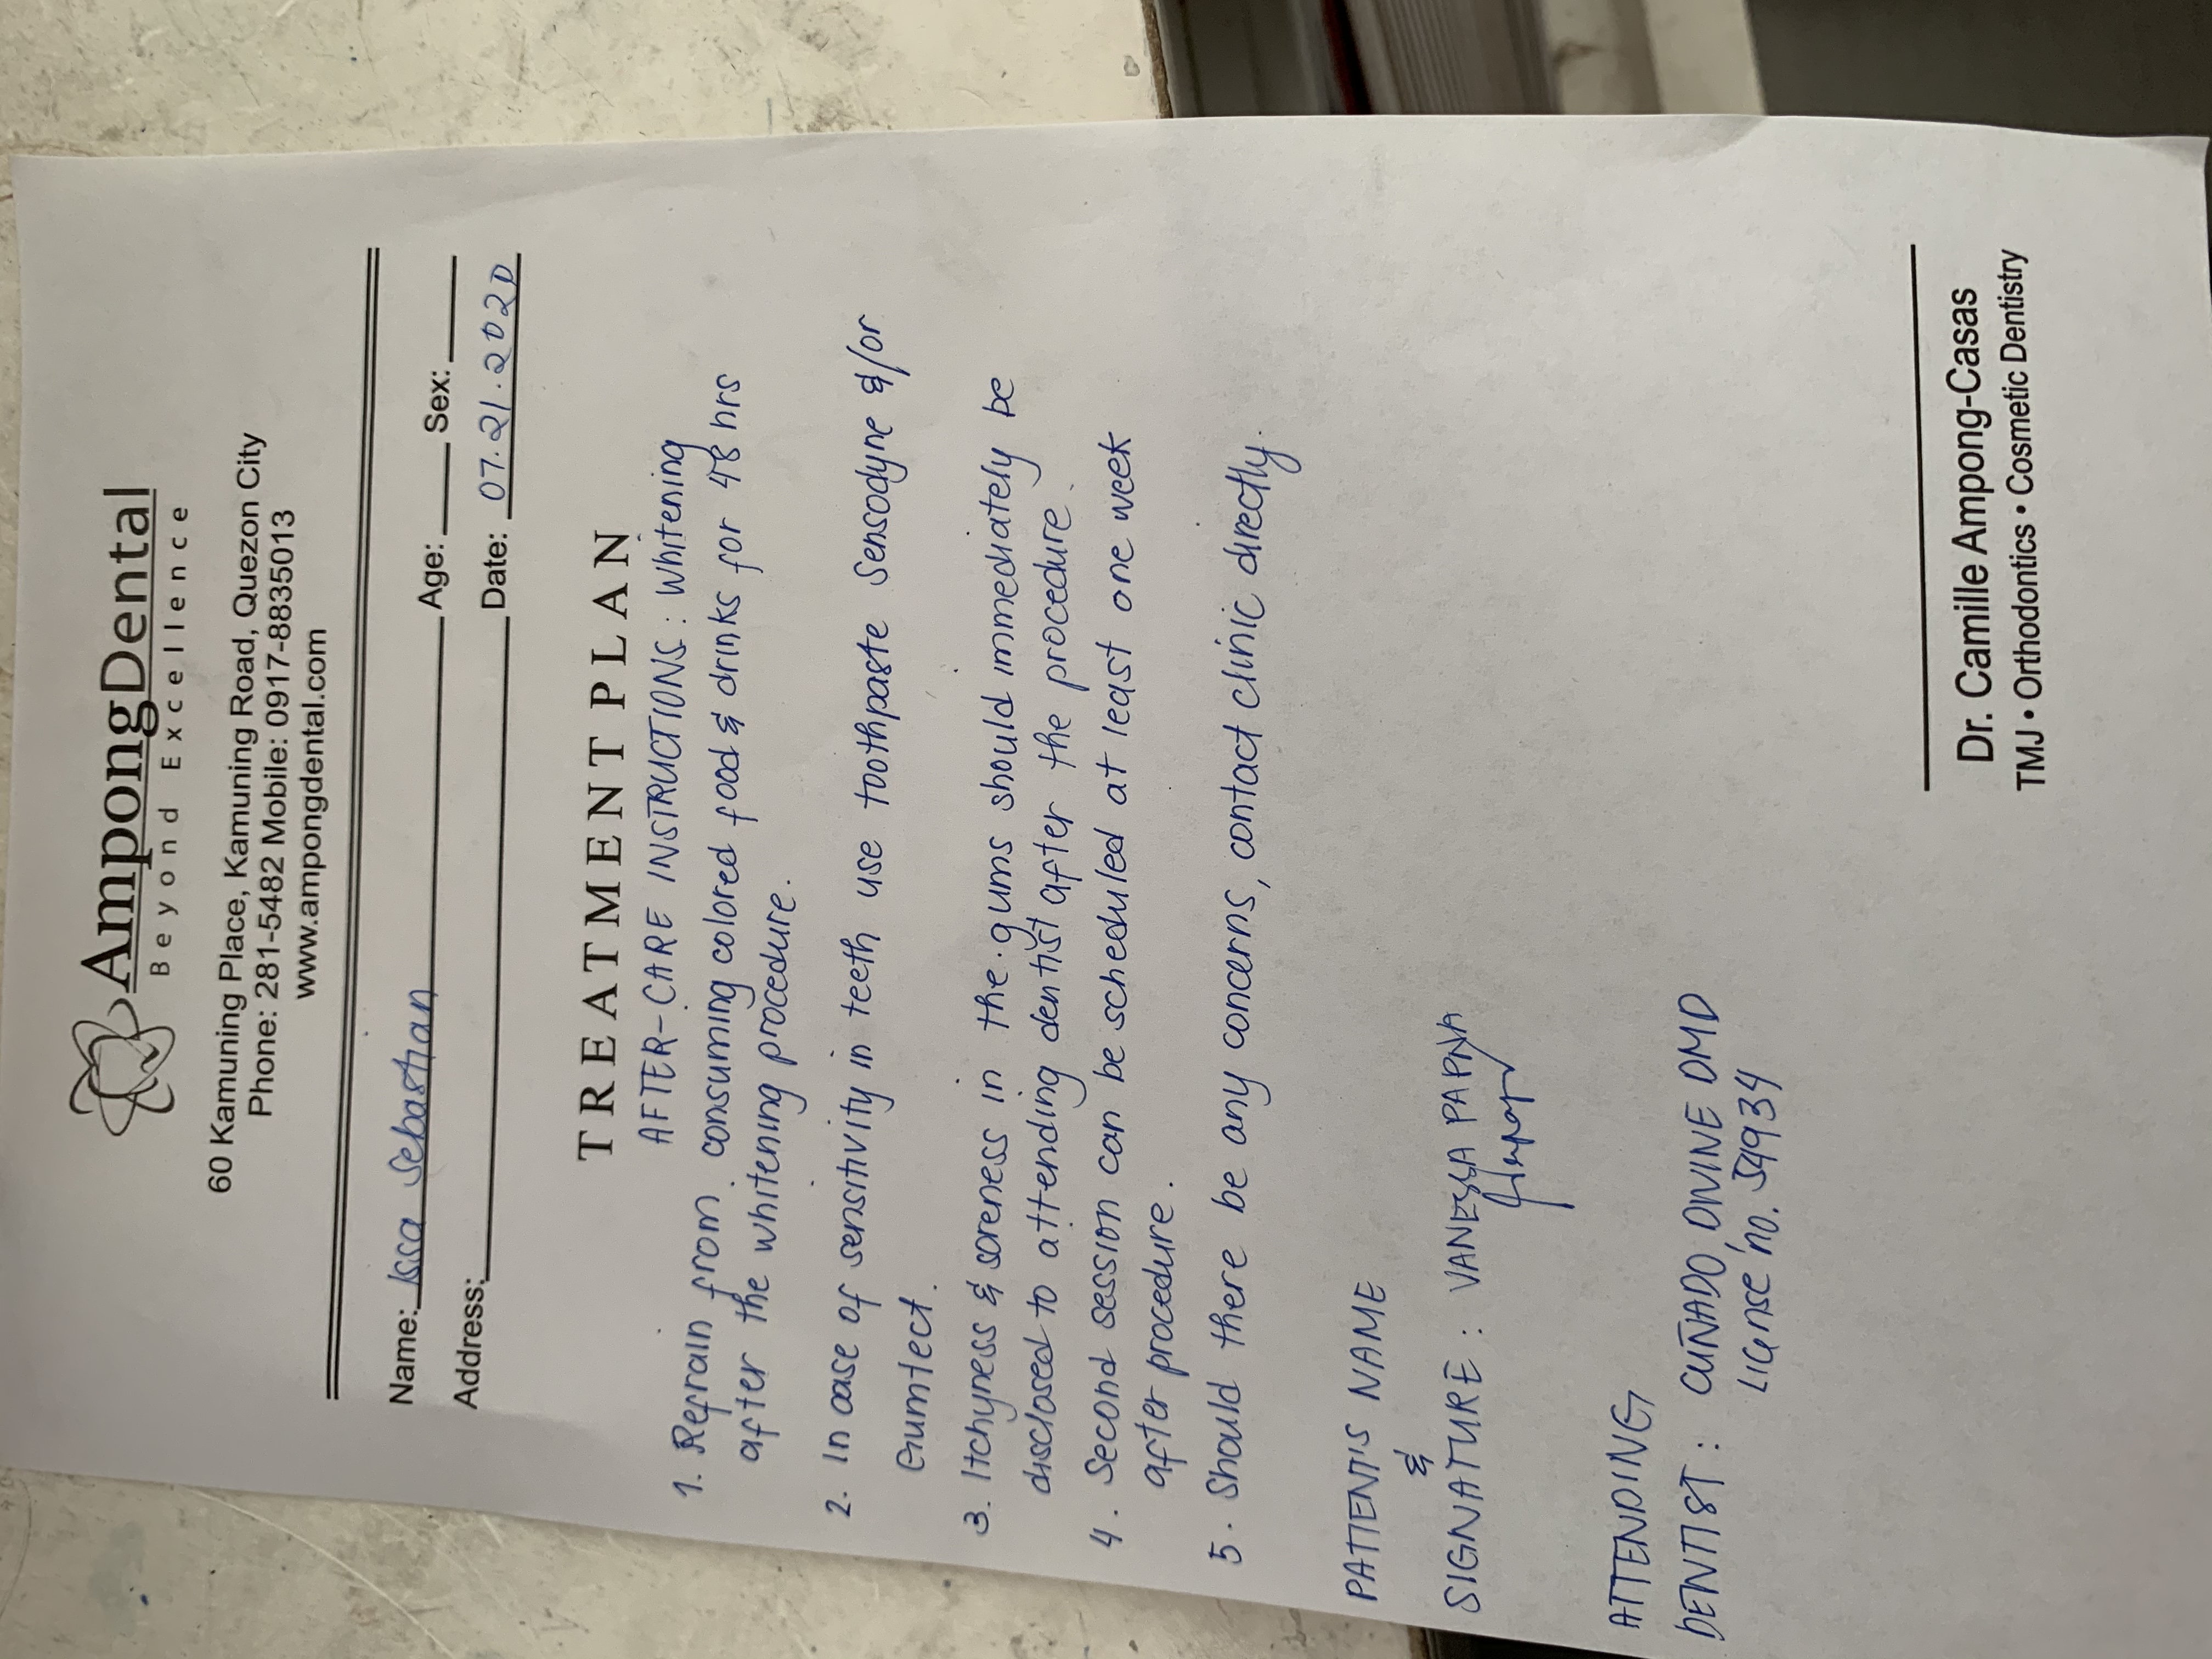 AmpongDental
Beyond Excellence
60 Kamuning Place, Kamuning Road, Quezon City
Phone: 281-5482 Mobile: 0917-8835013
www.ampongdental.com
Name: Issa Sebastian Age: Sex:
Address: Date: 07.21.2020
TREATMENT PLAN
AFTER-CARE INSTRUCTIONS: Whitening
1. Refrain from consuming colored food & drinks for 48 hrs
after the whitening procedure.
2. In case of sensitivity in teeth use toothpaste Sensodyne &/or
Gumtect.
3. Itchyness & soreness in the gums should immediately be
disclosed to attending dentist after the procedure.
4. Second session can be scheduled at least one week
after procedure.
5. Should there be any concerns, contact clinic directly.
PATIENT'S NAME
&
SIGNATURE: VANESSA PAPNA
ATTENDING
DENTIST: CUÑADO, DIVINE DMD
License no. 54934
Dr. Camille Ampong-Casas
TMJ • Orthodontics • Cosmetic Dentistry